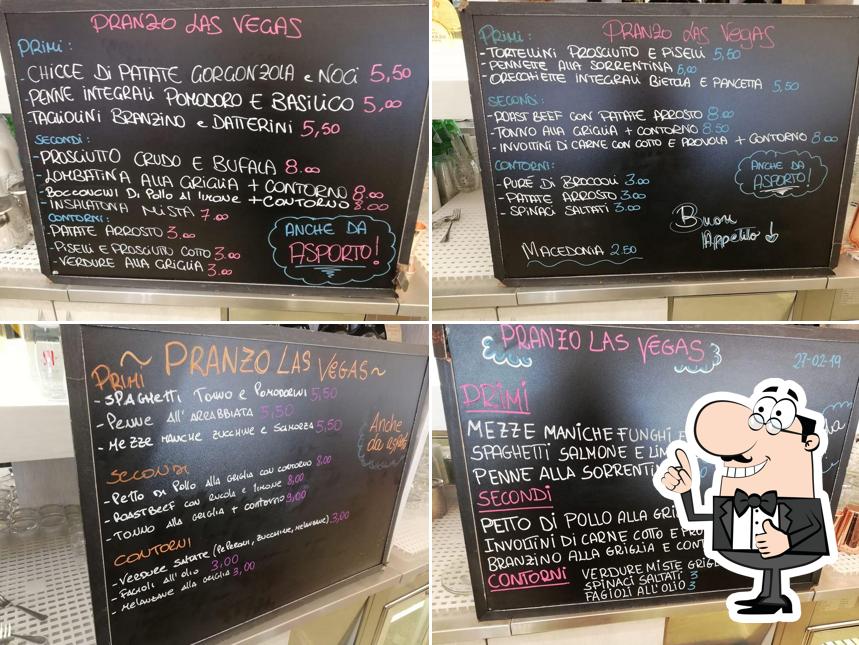 PRANZO LAS VEGAS
PRIMI:
-CHICCE DI PATATE GORGONZOLA e NOCI 5,50
-PENNE INTEGRALI POMODORO E BASILICO 5,00
TAGLIOLINI BRANZINO e DATTERINI 5,50
SECONDI:
-PROSCIUTTO CRUDO E BUFALA 8.00
-LOMBATINA ALLA GRIGLIA + CONTORNO 8.00
-BOCCONCINI DI POLLO AL LIMONE + CONTORNO 8.00
-INSALATONA MISTA 7.00
CONTORNI:
-PATATE ARROSTO 3.00
-PISELLI E PROSCIUTTO COTTO 3.00
-VERDURE ALLA GRIGLIA 3.00
ANCHE DA
ASPORTO!
PRANZO LAS VEGAS
PRIMI:
-TORTELLINI PROSCIUTO E PISELLI 5,50
-PENNETTE ALLA SORRENTINA 5,00
-ORECCHIETTE INTEGRALI BIETOLA E PANCETTA 5,50
SECONDI:
-ROAST BEEF CON PATATE ARROSTO 8.00
-TONNO ALLA GRIGLIA + CONTORNO 8.50
-INVOLTINI DI CARNE CON COTTO E PROVOLA + CONTORNO 8.00
CONTORNI:
-PURÈ DI BROCCOLI 3.00
-PATATE ARROSTO 3.00
-SPINACI SALTATI 3.00
ANCHE DA
ASPORTO!
Buon
Appetito
MACEDONIA 2.50
~ PRANZO LAS VEGAS ~
PRIMI
-SPAGHETTI TONNO E POMODORINI 5,50
-PENNE ALL'ARRABBIATA 5,50
-MEZZE MANICHE ZUCCHINE E SCAMORZA 5,50
Anche
da
SECONDI
-PETTO DI POLLO ALLA GRIGLIA CON CONTORNO 8,00
-ROASTBEEF CON RUCOLA E LIMONE 8,00
-TONNO ALLA GRIGLIA + CONTORNO 9,00
CONTORNI
-VERDURE SALTATE (PEPERONI, ZUCCHINE, MELANZANE) 3,00
-FAGIOLI ALL'OLIO 3,00
-MELANZANE ALLA GRIGLIA 3,00
PRANZO LAS VEGAS
27-02-19
PRIMI
MEZZE MANICHE FUNGHI E
SPAGHETTI SALMONE E
PENNE ALLA SORRENTINA
SECONDI
PETTO DI POLLO ALLA
INVOLTINI DI CARNE COTTO E
BRANZINO ALLA GRIGLIA E
CONTORNI
VERDURE MISTE
SPINACI SALTATI 3
FAGIOLI ALL'OLIO 3